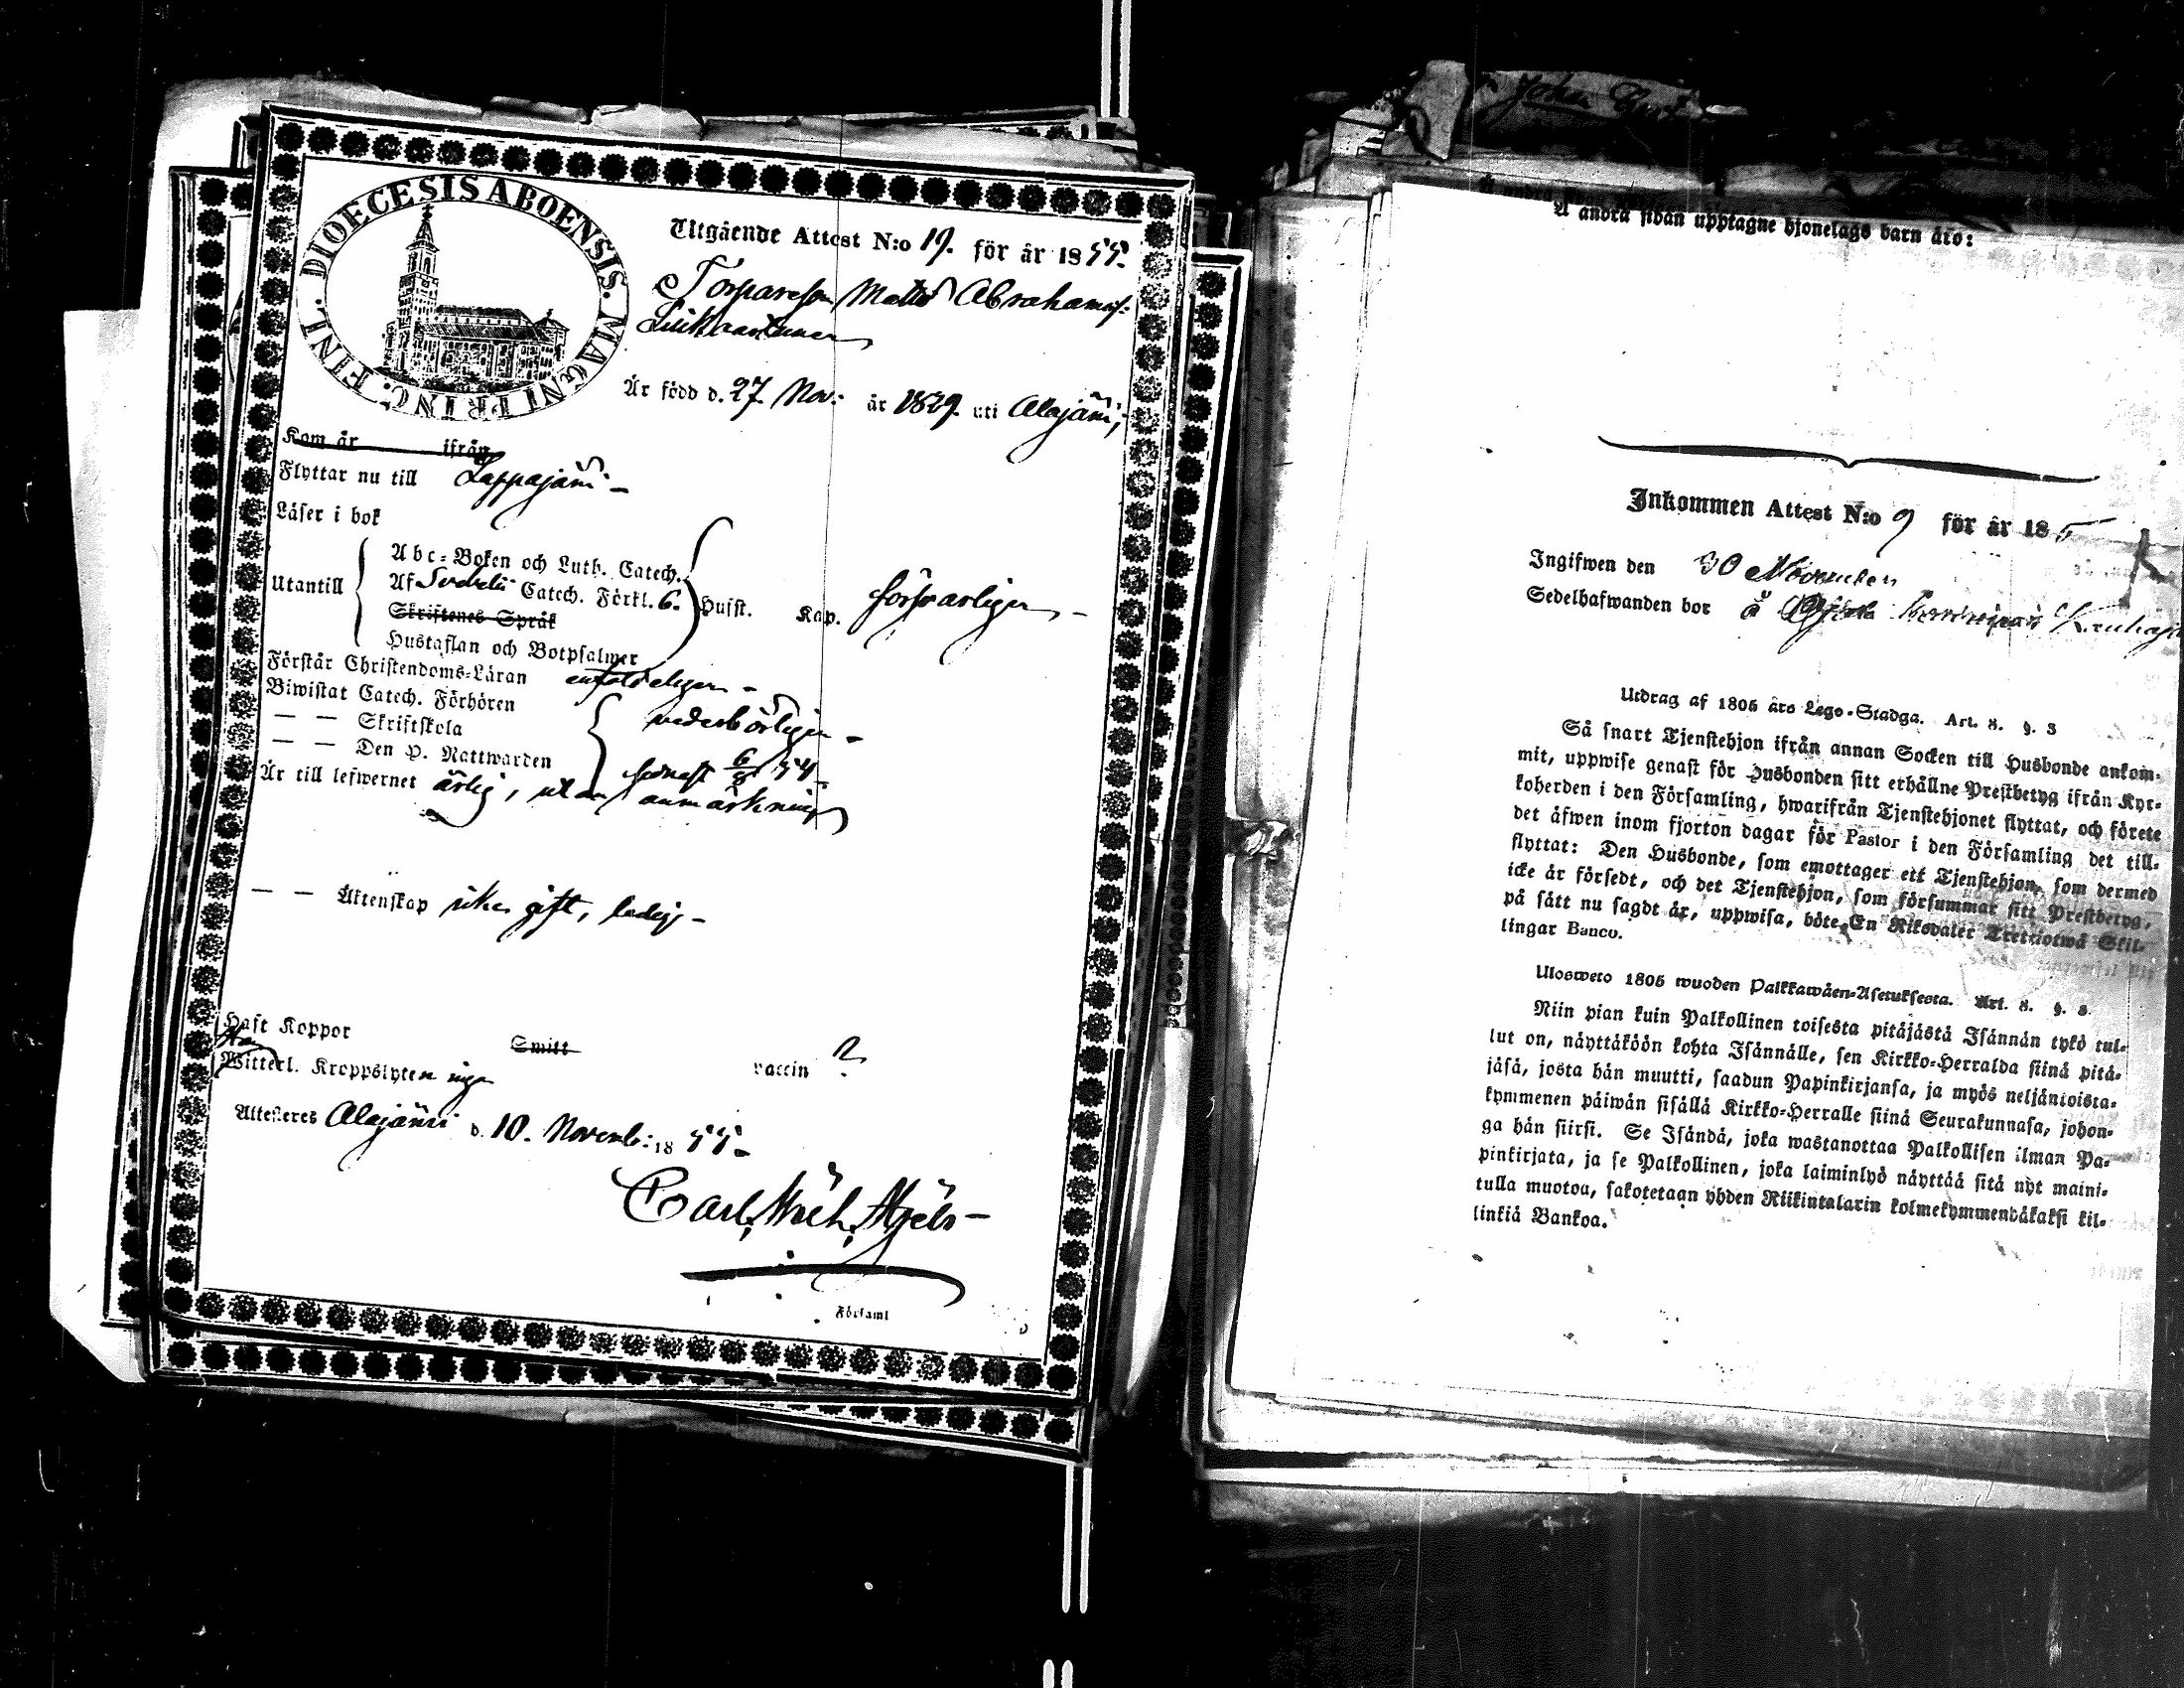 DIOECESIS ABOENSIS. MAGNI PRINC. FINL.
Utgående Attest N:o 19. för år 1855.
Torpareson Matts Abrahamss:
Är född d. 27. Nov: år 1829. uti Alajärvi,
Kom år ifrån
Flyttar nu till Lappajärvi –
Läser i bok
Utantill
Abc-Boken och Luth. Catech.
Af Svebelii Catech. Förkl. 6. Huſſt. Kap. försvarligen –
Skriftenes Språk
Hustaflan och Botpsalmer
Förstår Christendoms-Läran enfaldeligen –
Biwistat Catech. Förhören
— — Skriftskola vederbörligen –
— — Den H. Nattwarden senast 6/8 54
Är till lefwernet ärlig, utan anmärkning
— — Äktenskap icke gift, ledig –
Haft Koppor Smitt vaccin ?
Witterl. Kroppslyten inga
Attesteres Alajärvi d. 10. Novemb: 1855.
Församl
Å andra sidan upptagne hjonelags barn äro:
Inkommen Attest N:o 9 för år 185
Ingifwen den 30 November
Sedelhafwanden bor å
Utdrag af 1805 års Lego-Stadga. Art. 8. §. 3
Så snart Tjenstehjon ifrån annan Socken till Husbonde ankom-
mit, uppwise genast för Husbonden sitt erhållne Prestbetyg ifrån Kyr-
koherden i den Församling, hwarifrån Tjenstehjonet flyttat, och förete
det äfwen inom fjorton dagar för Pastor i den Församling det till-
flyttat: Den Husbonde, som emottager ett Tjenstehjon, som dermed
icke är försedt, och det Tjenstehjon, som försummar sitt Prestbetyg,
på sätt nu sagdt är, uppwisa, böte En Riksdaler Trettiotwå Skil-
lingar Banco.
Ulosweto 1805 wuoden Palkkawäen-Asetuksesta. Art. 8. §. 3.
Niin pian kuin Palkollinen toisesta pitäjästä Isännän tykö tul-
lut on, näyttäköön kohta Isännälle, sen Kirkko-Herralda siinä pitä-
jäsä, josta hän muutti, saadun Papinkirjansa, ja myös neljäntoista-
kymmenen päiwän sisällä Kirkko-Herralle siinä Seurakunnasa, johon-
ga hän siirsi. Se Isändä, joka wastanottaa Palkollisen ilman Pa-
pinkirjata, ja se Palkollinen, joka laiminlyö näyttää sitä nyt maini-
tulla muotoa, sakotetaan yhden Riikintalarin kolmekymmendäkaksi kil-
linkiä Bankoa.